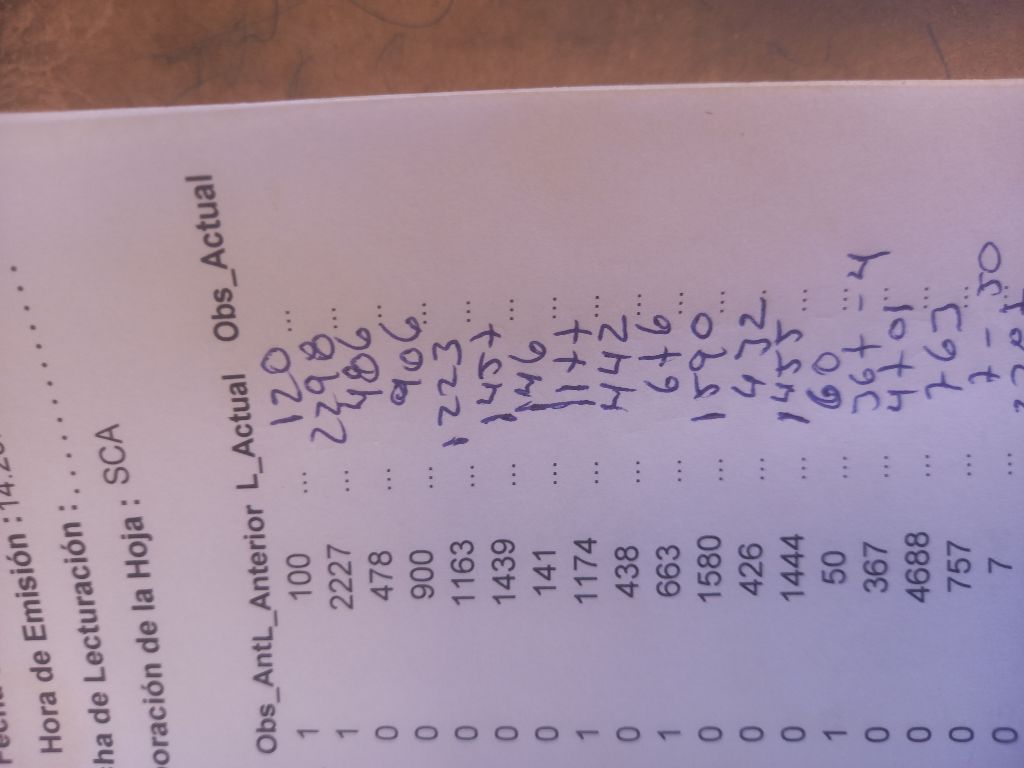 Hora de Emisión :14:20
ha de Lecturación : . . . . . . . . . . . . . . . .
oración de la Hoja : SCA
Obs_Ant L_Anterior L_Actual Obs_Actual
1 100 ... 120 ...
1 2227 ... 2298 ...
0 478 ... 486 ...
0 900 ... 906 ...
0 1163 ... 1223 ...
0 1439 ... 1457 ...
0 141 ... 146 ...
1 1174 ... 1177 ...
0 438 ... 442 ...
1 663 ... 676 ...
0 1580 ... 1590 ...
0 426 ... 432 ...
0 1444 ... 1455 ...
1 50 ... 60 ...
0 367 ... 367 - 4 ...
0 4688 ... 4701 ...
0 757 ... 763 ...
0 7 ... 7 - 50 ...